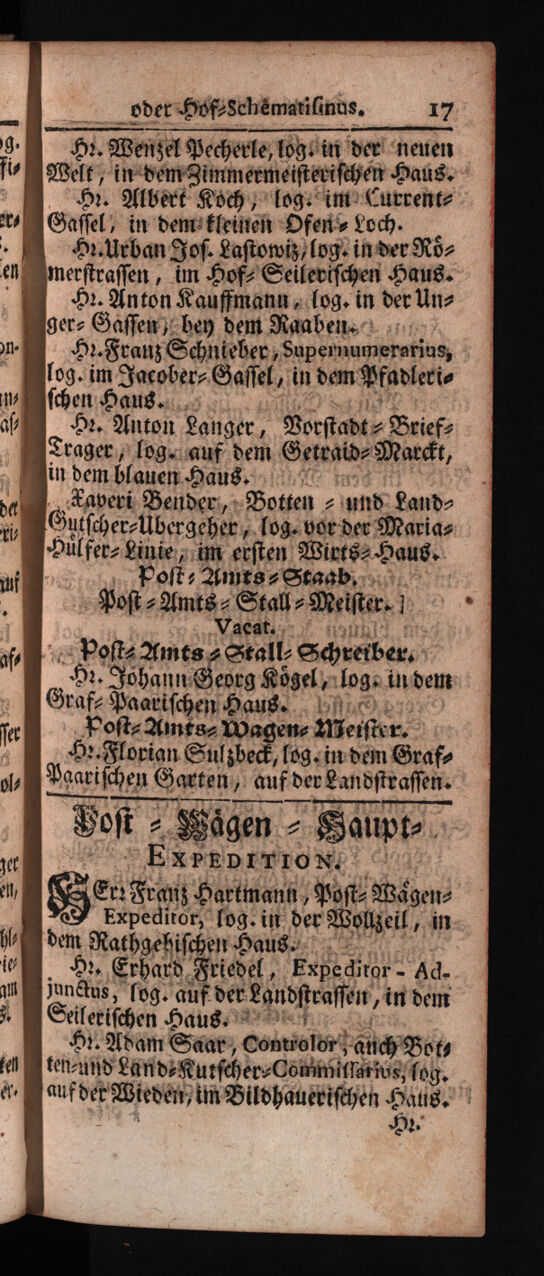 oder Hof-Schematismus. 17
Hr. Wenzel Pecherle, log. in der neuen
Welt, in dem Zimmermeisterischen Haus.
Hr. Albert Koch, log. im Current-
Gassel, in dem kleinen Ofen-Loch.
Hr. Urban Jos. Lastowiz, log. in der Rö-
merstrassen, im Hof-Seilerischen Haus.
Hr. Anton Kauffmann, log. in der Un-
ger-Gassen, bey dem Raaben.
Hr. Franz Schnieber, Supernumerarius,
log. im Jacober-Gassel, in dem Pfadleri-
schen Haus.
Hr. Anton Langer, Vorstadt-Brief-
Trager, log. auf dem Getraid-Marckt,
in dem blauen Haus.
Xaveri Bender, Botten- und Land-
Gutscher-Ubergeher, log. vor der Maria-
Hülfer-Linie, im ersten Wirts-Haus.
Post-Amts-Staab.
Post-Amts-Stall-Meister.
Vacat.
Post-Amts-Stall-Schreiber.
Hr. Johann Georg Kögel, log. in dem
Graf-Paarischen Haus.
Post-Amts-Wagen-Meister.
Hr. Florian Sulzbeck, log. in dem Graf-
Paarischen Garten, auf der Landstrassen.
Post-Wägen-Haupt-
EXPEDITION.
HErr Franz Hartmann, Post-Wägen-
Expeditor, log. in der Wollzeil, in
dem Rathgebischen Haus.
Hr. Erhard Friedel, Expeditor-Ad-
junctus, log. auf der Landstrassen, in dem
Seilerischen Haus.
Hr. Adam Saar, Controlor, auch Bot-
ten-und Land-Kutscher-Commissarius, log.
auf der Wieden, im Bildhauerischen Haus.
Hr.